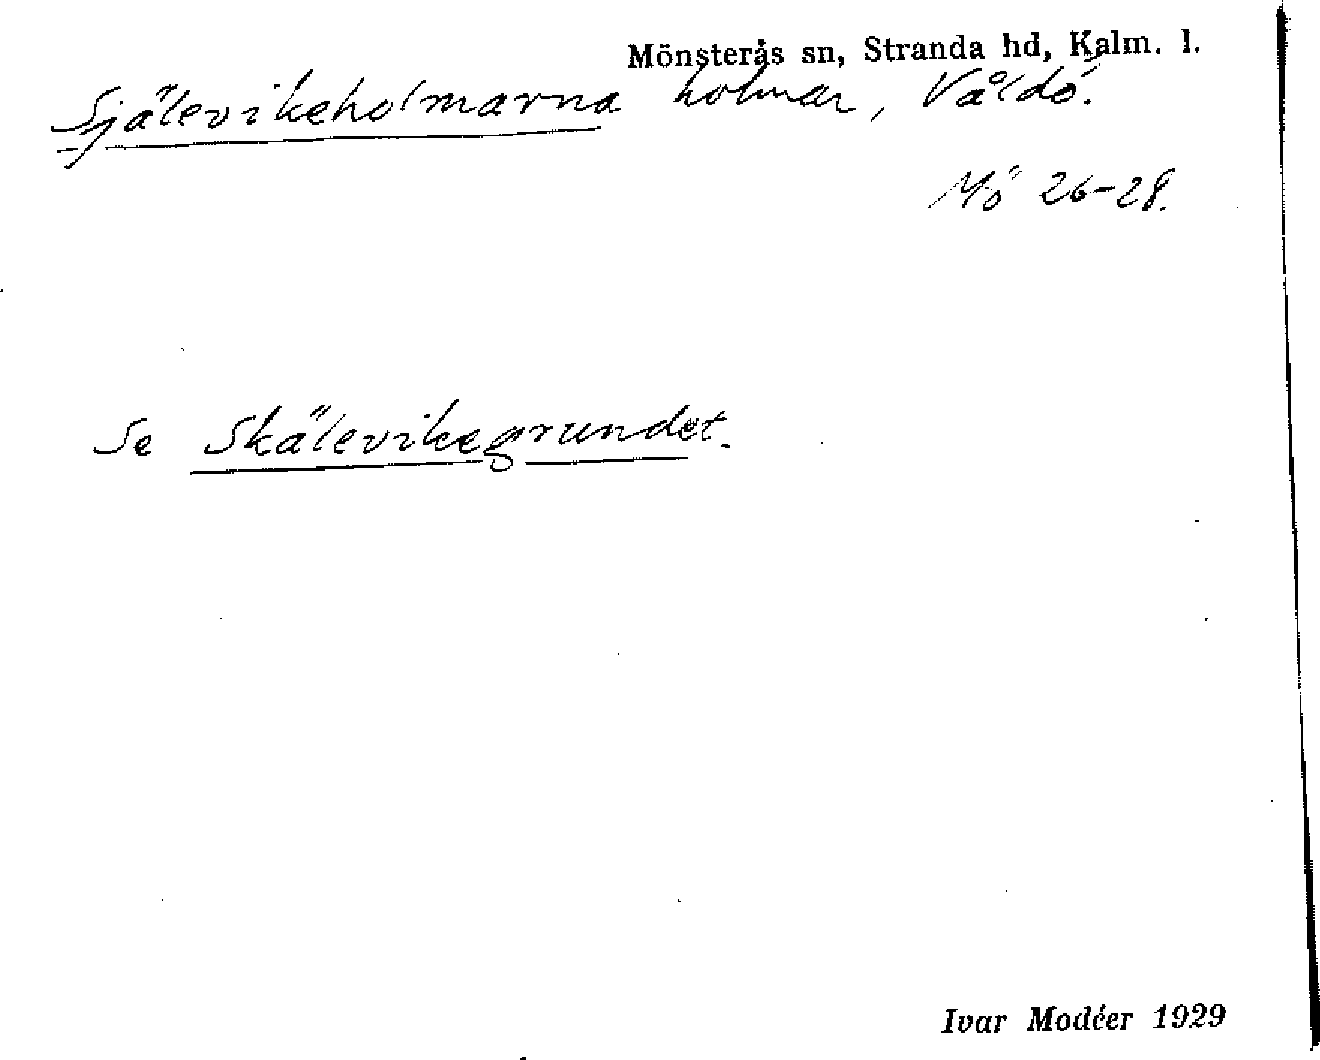 Mönsterås sn, Stranda hd, Kalm. l.
Själevikeholmarna holmar, Våldö.
Mö 26-28.
Se Skälevikegrundet.
Ivar Modéer 1929